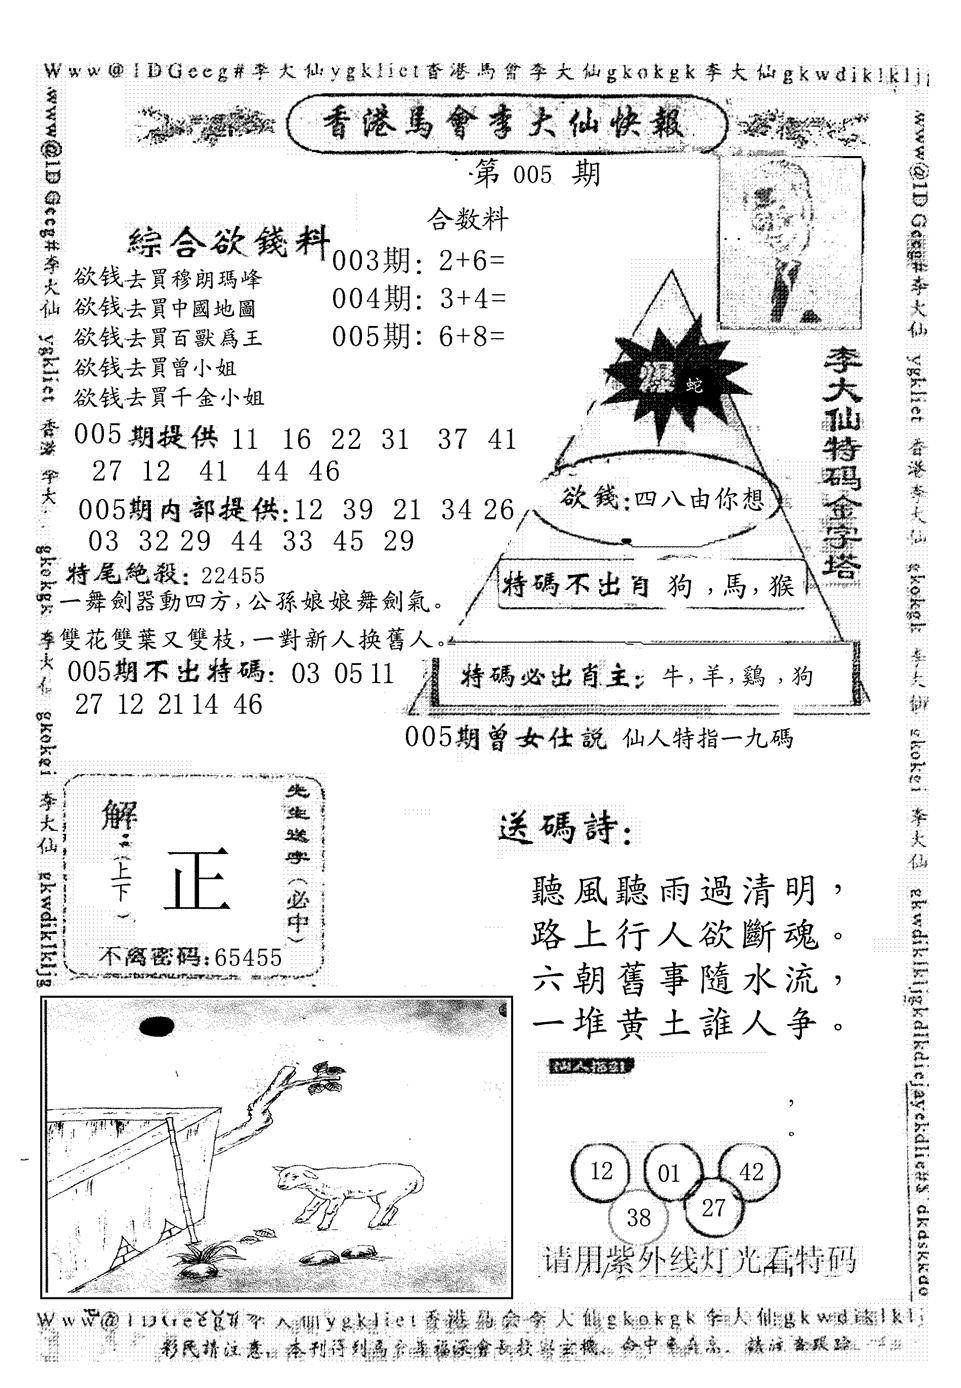 Www@1DGeeg#李大仙ygkliet香港馬會李大仙gkokgk李大仙gkwdiklkljg
香港馬會李大仙快報
第 005 期
合数料
綜合欲錢料
003期: 2+6=
004期: 3+4=
005期: 6+8=
欲钱去買穆朗瑪峰
欲钱去買中國地圖
欲钱去買百獸爲王
欲钱去買曾小姐
欲钱去買千金小姐
005期提供 11 16 22 31 37 41
27 12 41 44 46
005期内部提供:12 39 21 34 26
03 32 29 44 33 45 29
特尾絶殺: 22455
一舞劍器動四方,公孫娘娘舞劍氣。
雙花雙葉又雙枝,一對新人换舊人。
005期不出特碼: 03 05 11
27 12 21 14 46
李大仙特码金字塔
爆 蛇
欲錢:四八由你想
特碼不出肖 狗,馬,猴
特碼必出肖主: 牛,羊,鷄,狗
005期曾女仕説 仙人特指一九碼
先生送字(必中)
解:(上下)
正
不离密码:65455
送碼詩:
聽風聽雨過清明,
路上行人欲斷魂。
六朝舊事隨水流,
一堆黄土誰人争。
,
。
12 01 42
38 27
请用紫外线灯光看特码
www@1DGeeg#李大仙 ygkliet 香港 李大仙 gkokgk 李大仙 gkokei 李大仙 gkwdiklkljg
www@1DGeeg#李大仙 ygkliet 香港李大仙 gkokgk 李大仙 gkokei 李大仙 gkwdiklkljgkdlkdiejayekdlie#$ dkdskkdo
Www@1DGeeg#李大仙ygkliet香港馬会李大仙gkokgk李大仙gkwdiklklj
彩民請注意,本刊得到馬会